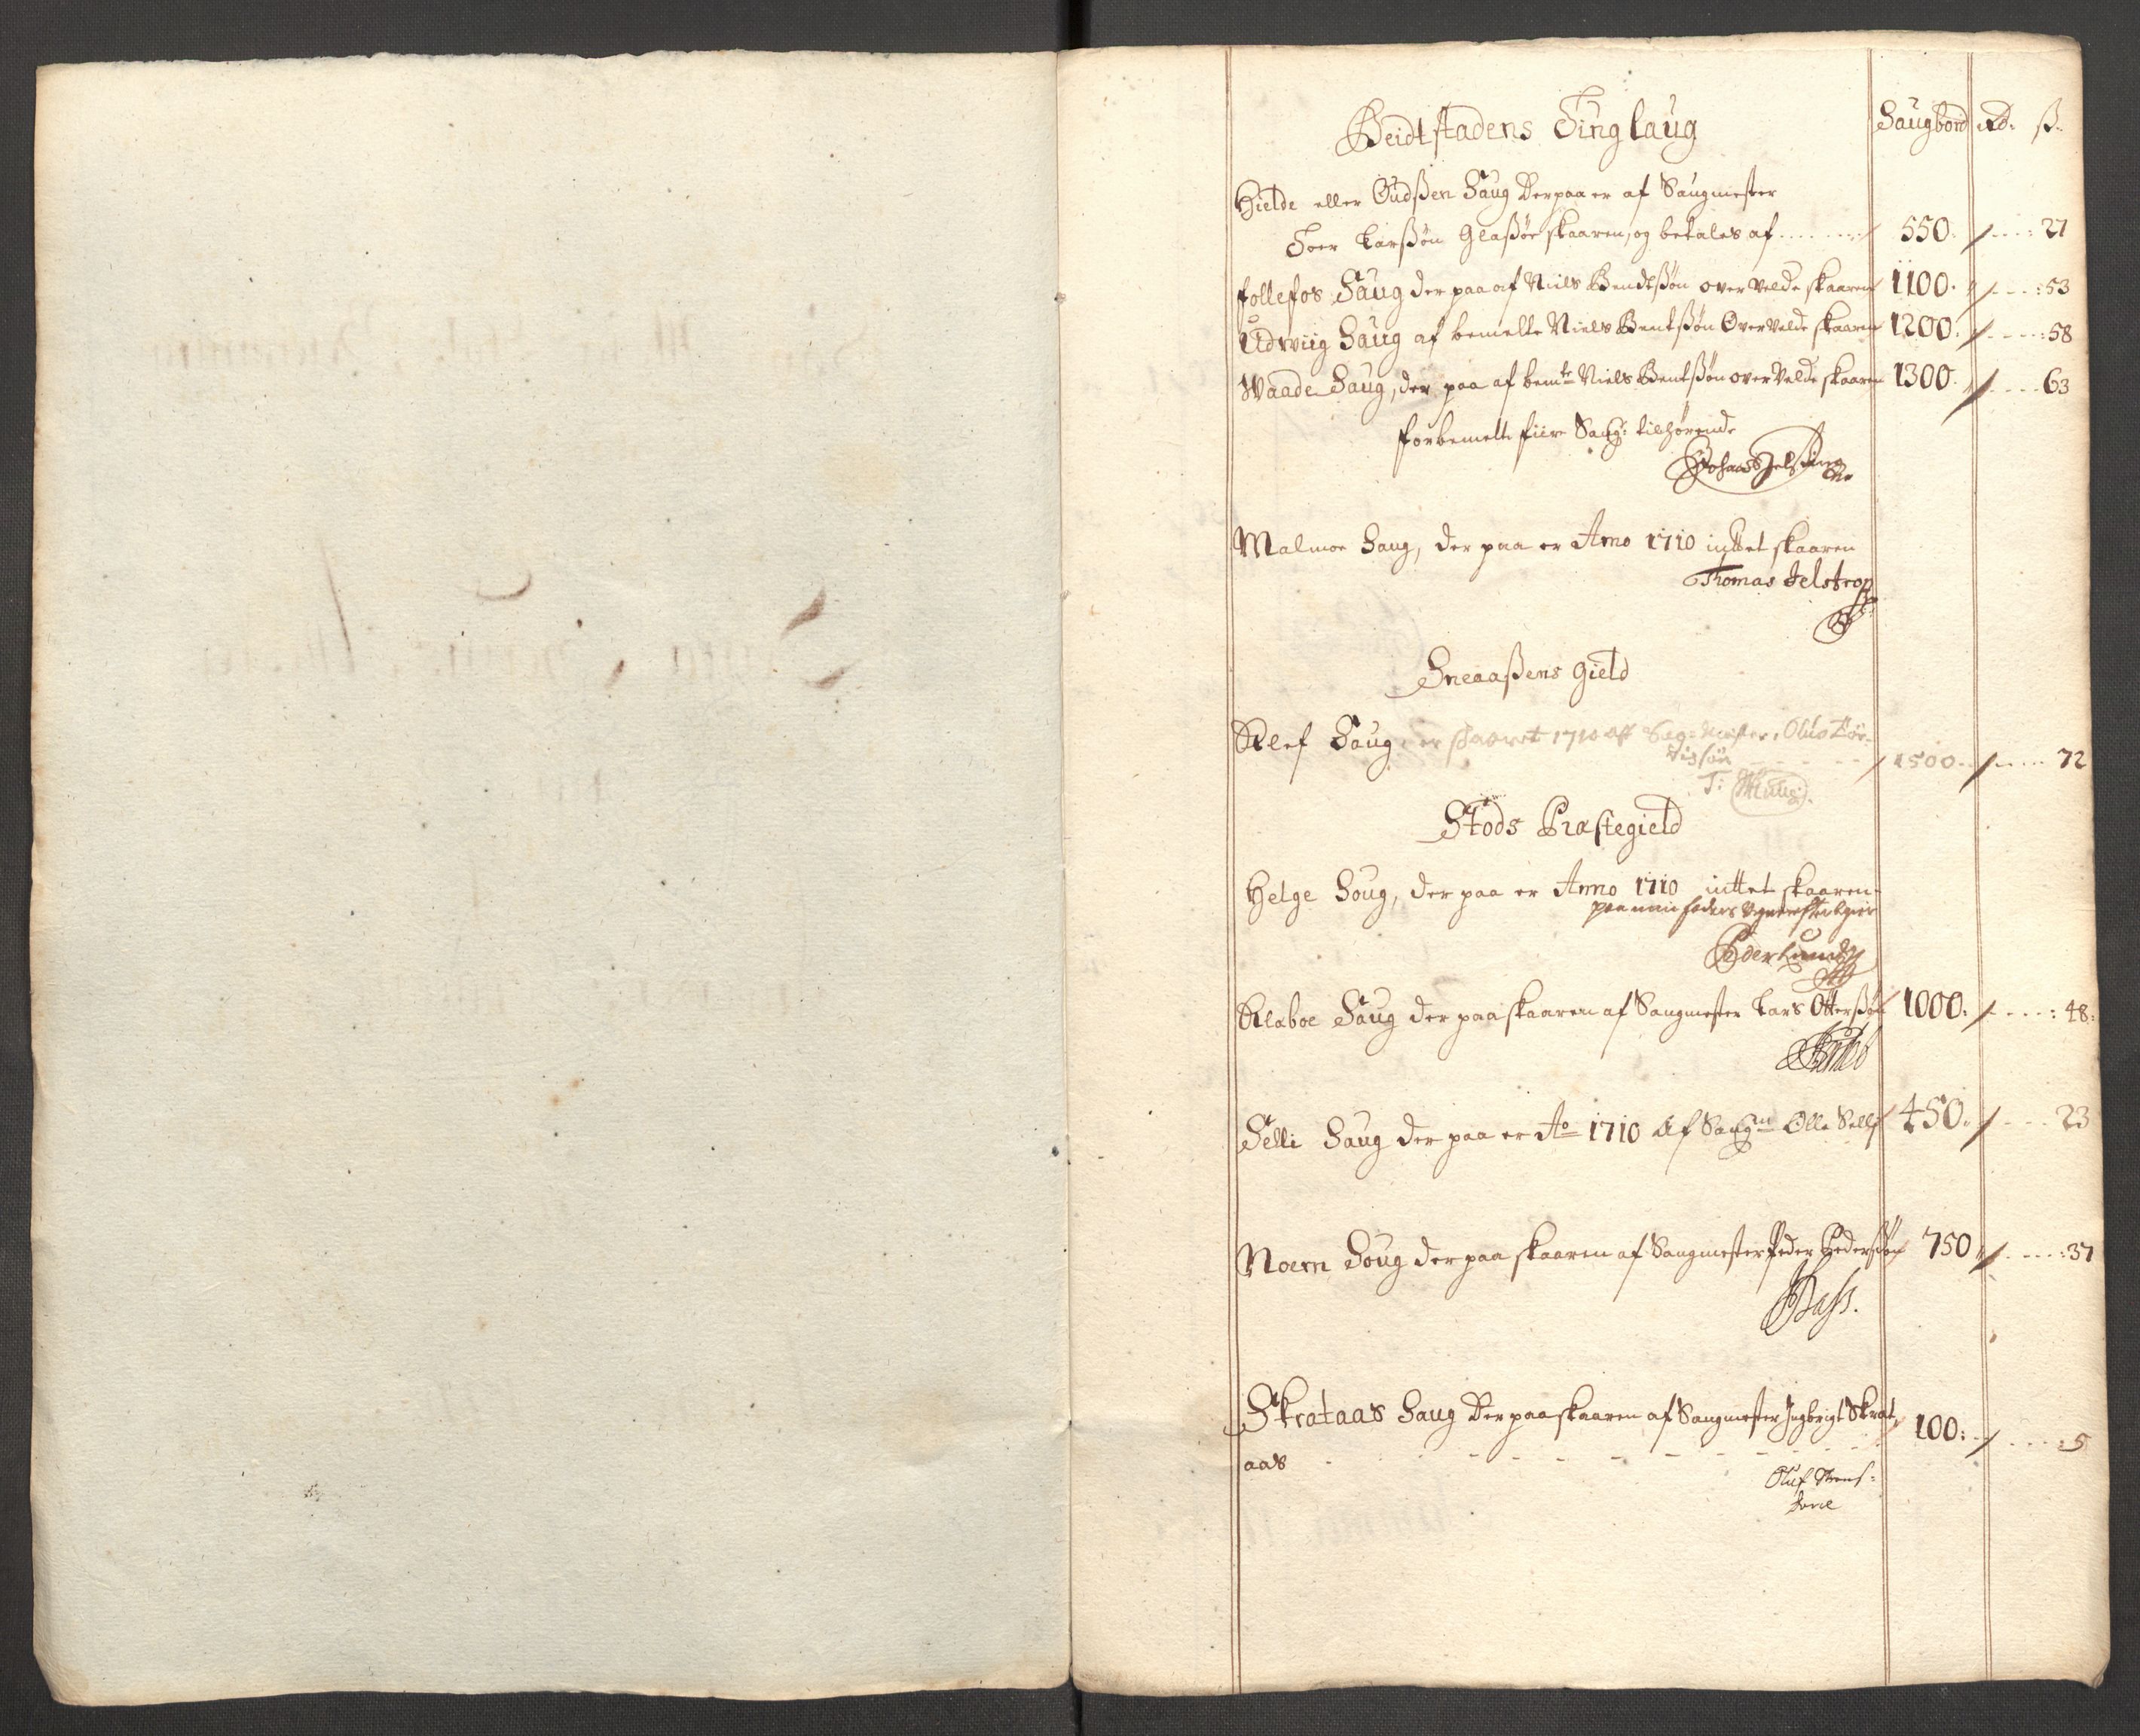 Beidtstadens Tinglaug Saugbord Rd: ß:
Hielde eller Oudßen Saug Der paa er af Saugmester
Toer Larßøn Glaßøe skaaren, og betales af ........ 550. / ....: 27
follefos Saug der paa af Niels Bendtßøn over Velde skaaren 1100. / ....: 53
Udwiig Saug af bemelte Niels Bentßøn Over Velde skaaren 1200. / ....: 58
Waade Saug, der paa af bemte Niels Bentßøn over Velde skaaren 1300. / .... 63
forbemelte fiire Saug: tilhørende
Malmoe Saug, der paa er Anno 1710 inttet skaaren
Thomas Jelstrop
Sneaaßens gield
Klef Saug, er skaaret 1710 aff Sag-Mester, Olus Tør-
disßøn - - - - - / 1500.. / .... 72
T:
Støds Præstegield
Helge Soug, der paa er Anno 1710 inttet skaaren
paa min faders Vegne
Peder
Klaboe Saug der paa skaaren af Saugmester Lars Otterßøn 1000. / ....: 48:
Selli Saug der paa er Ao 1710 Af Saugm Olle Selli 450. / .... 23
Noem Soug der paa skaaren af Saugmester Peder Pederßøn 750 / ....: 37
Skrataas Saug Der paa skaaren af Saugmester Ingbrigt Skrat,
aas - - - - - - - 100: / ....: 5
Oluf